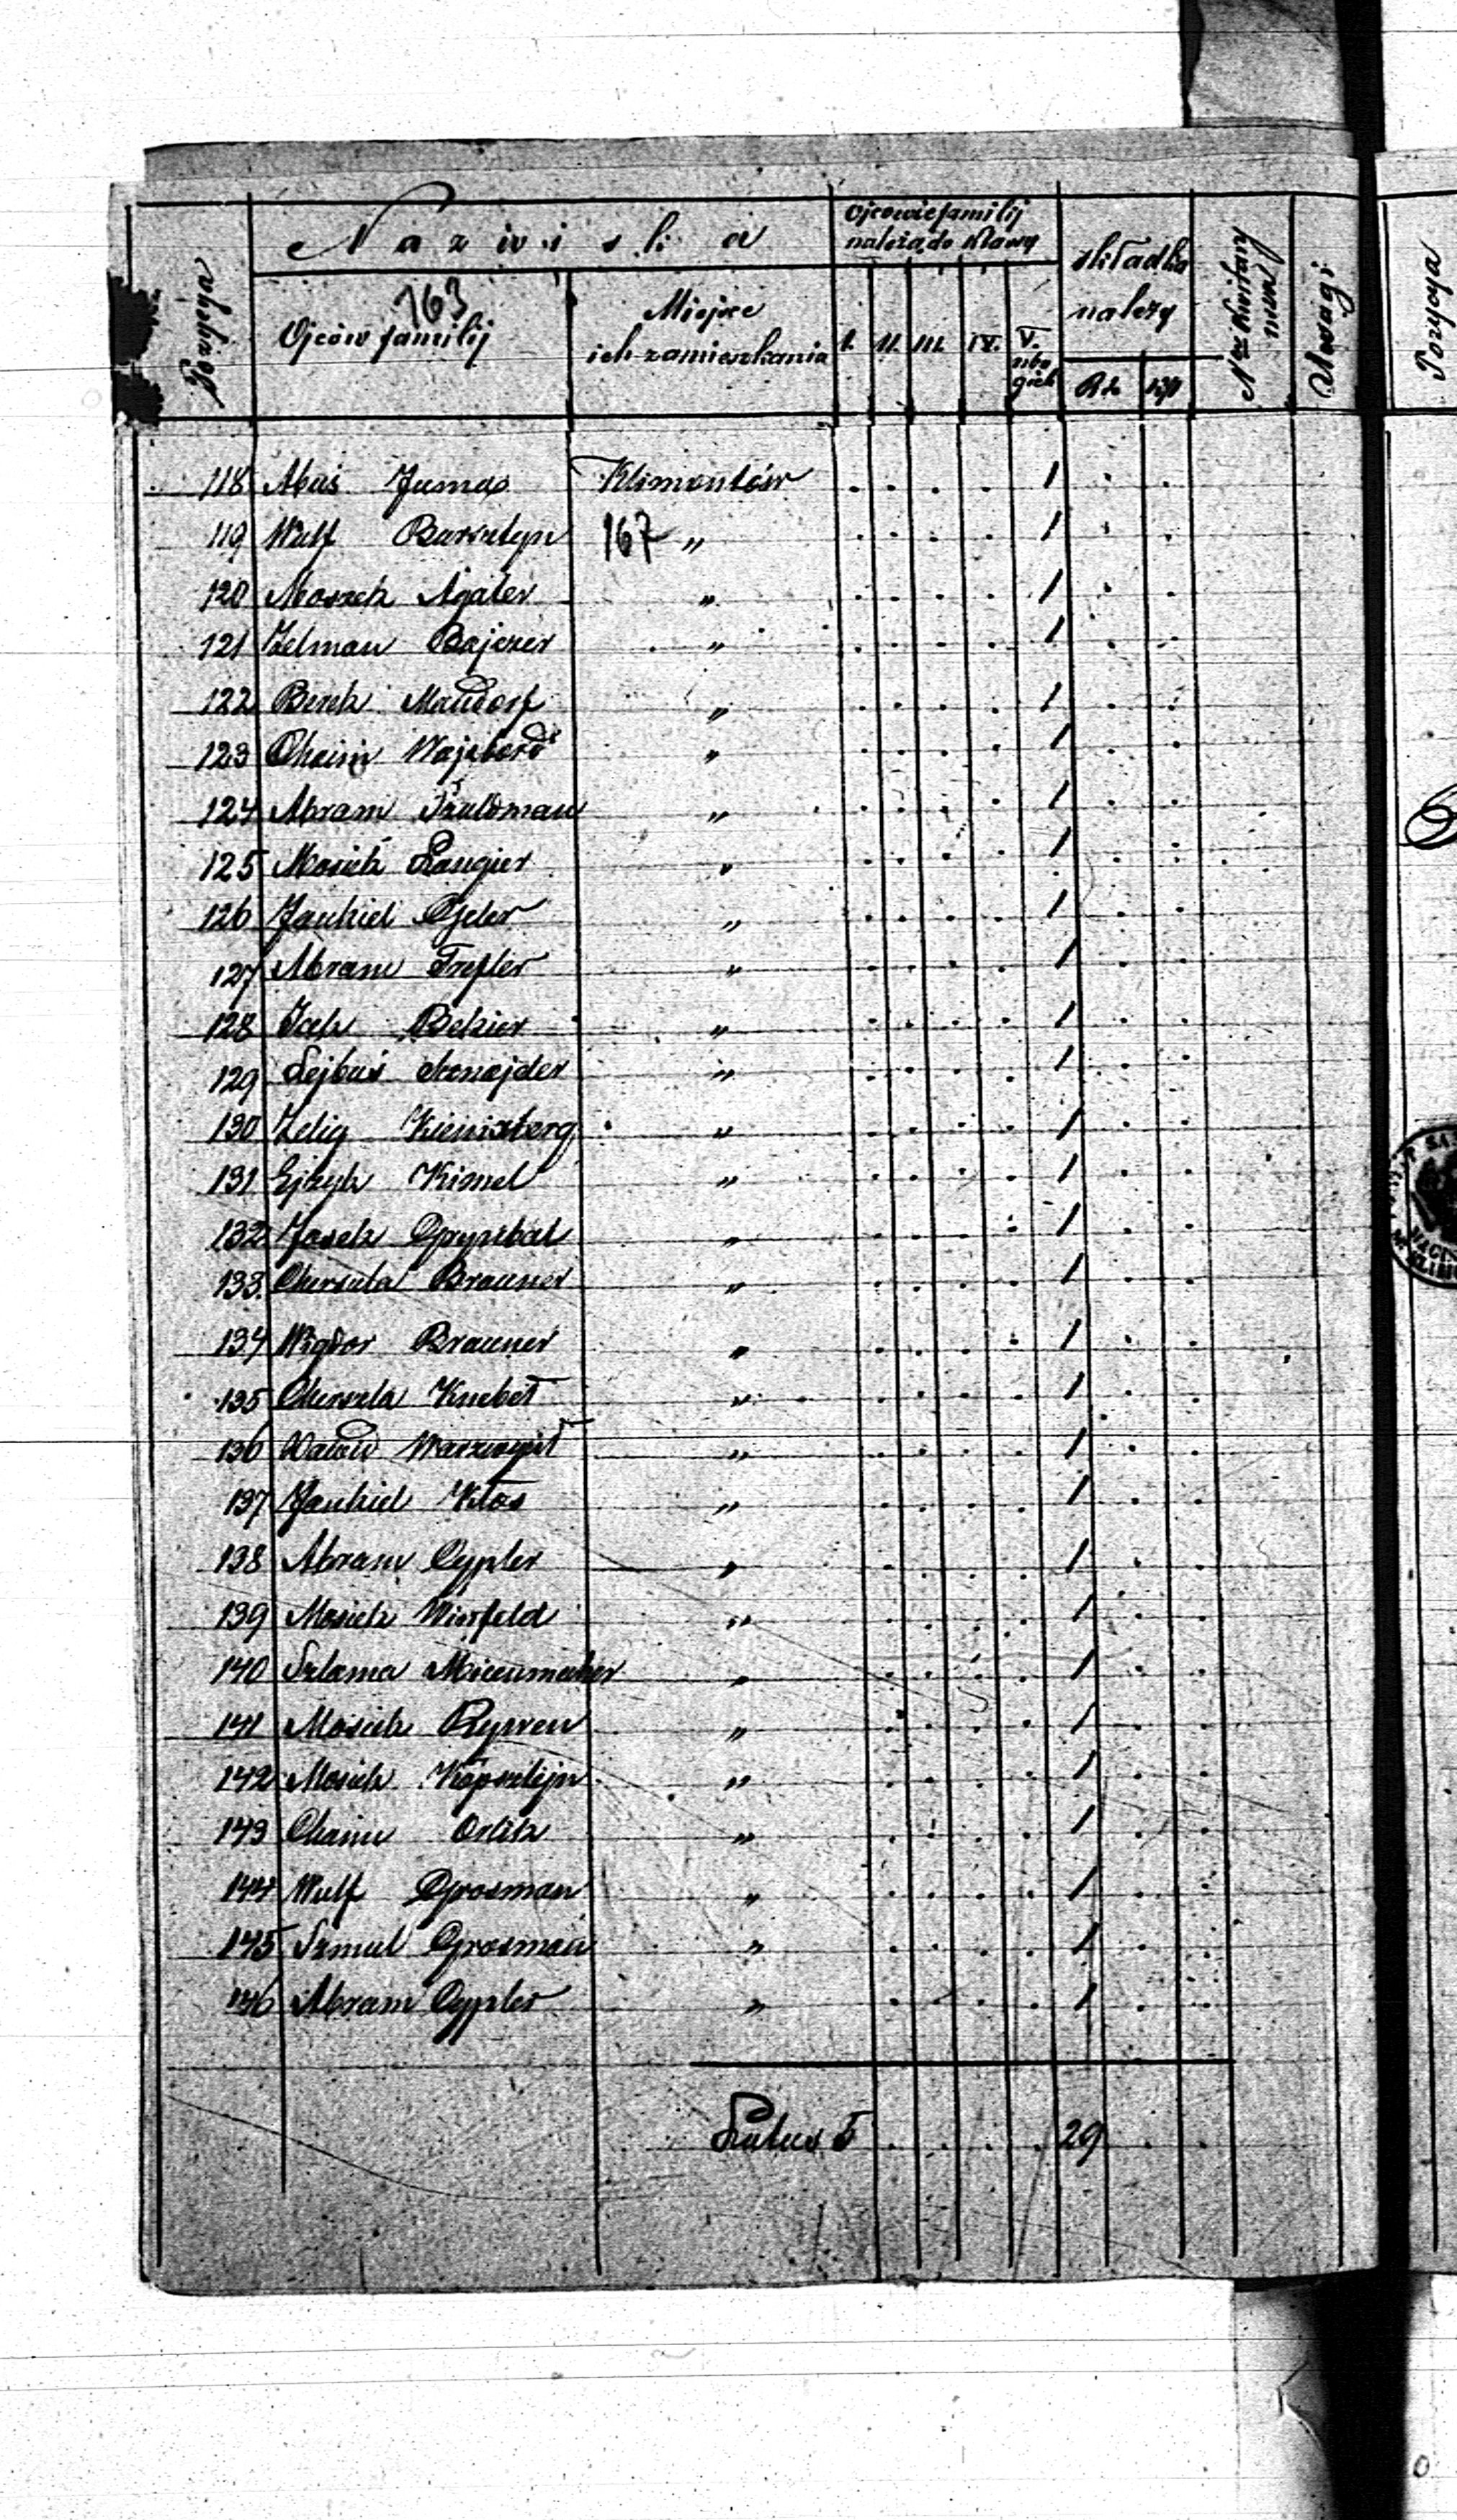 Pozycya
Nazwiska
163
Ojców familij
Miejsce
ich zamieszkania
Ojcowie familij
należą do klassy
I. II. III. IV. V.
ubo
gich
składka
należy
Rs kp
Uwagi
118 Abuś Klimontów 1
119 Wulf Bursztyn 167 " 1
120 Moszek Agater " 1
121 Zelman Bajczer " 1
122 Berek Mandorf " 1
123 Chaim Wajsbord " 1
124 Abram Szuldman " 1
125 Mosiek Langier " 1
126 Jankiel " 1
127 Abram Trefler " 1
128 Icek Bekier " 1
129 Lejbuś Sznajder " 1
130 Zelig Kienigsberg " 1
131 Ejzyk Kimel " 1
132 Josek Grynbal " 1
133 Chersula Brauner " 1
134 Wigdor Brauner " 1
135 Herszla Knebel " 1
136 Dawid " 1
137 Jankiel Kłos " 1
138 Abram Cypler " 1
139 Mosiek Winfeld " 1
140 Szlama Micenmacher " 1
141 Mosiek Rywen " 1
142 Mosiek " 1
143 Chaim Orlik " 1
144 Wulf Grosman " 1
145 Szmul Grosman " 1
146 Abram Cypler " 1
Latus 5 29
Pozycya